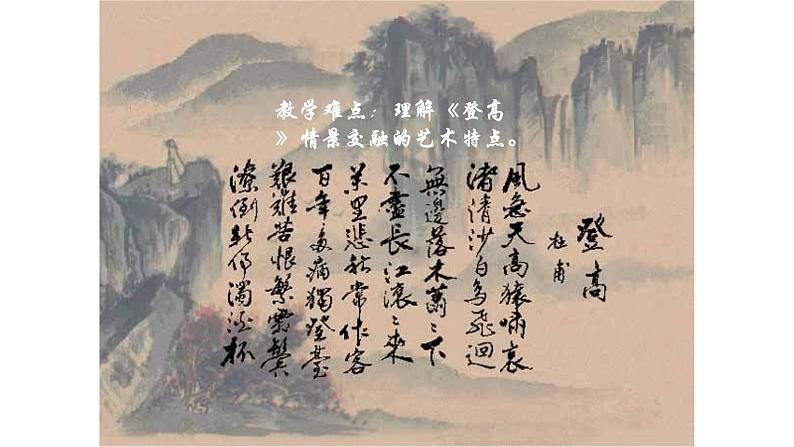 教学难点：理解《登高
》情景交融的艺术特点。
登高
杜甫
風急天高猿嘯哀
渚清沙白鳥飛迴
無邊落木蕭々下
不盡長江滾々來
萬里悲秋常作客
百年多病獨登臺
艱難苦恨繁霜鬢
潦倒新停濁酒杯